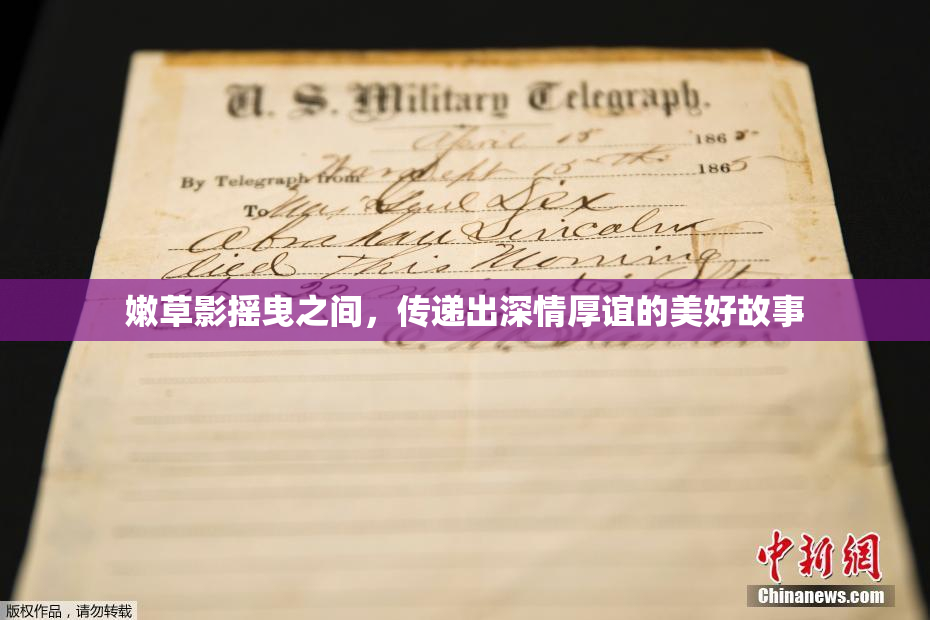 U. S. Military Telegraph.
April 15 1865
By Telegraph from War Dept 15th 1865
To Maj Genl Dix
Abraham Lincoln
died This Morning
at 22 minutes after
嫩草影摇曳之间，传递出深情厚谊的美好故事
E. M. Stanton
中新网
Chinanews.com
版权作品，请勿转载